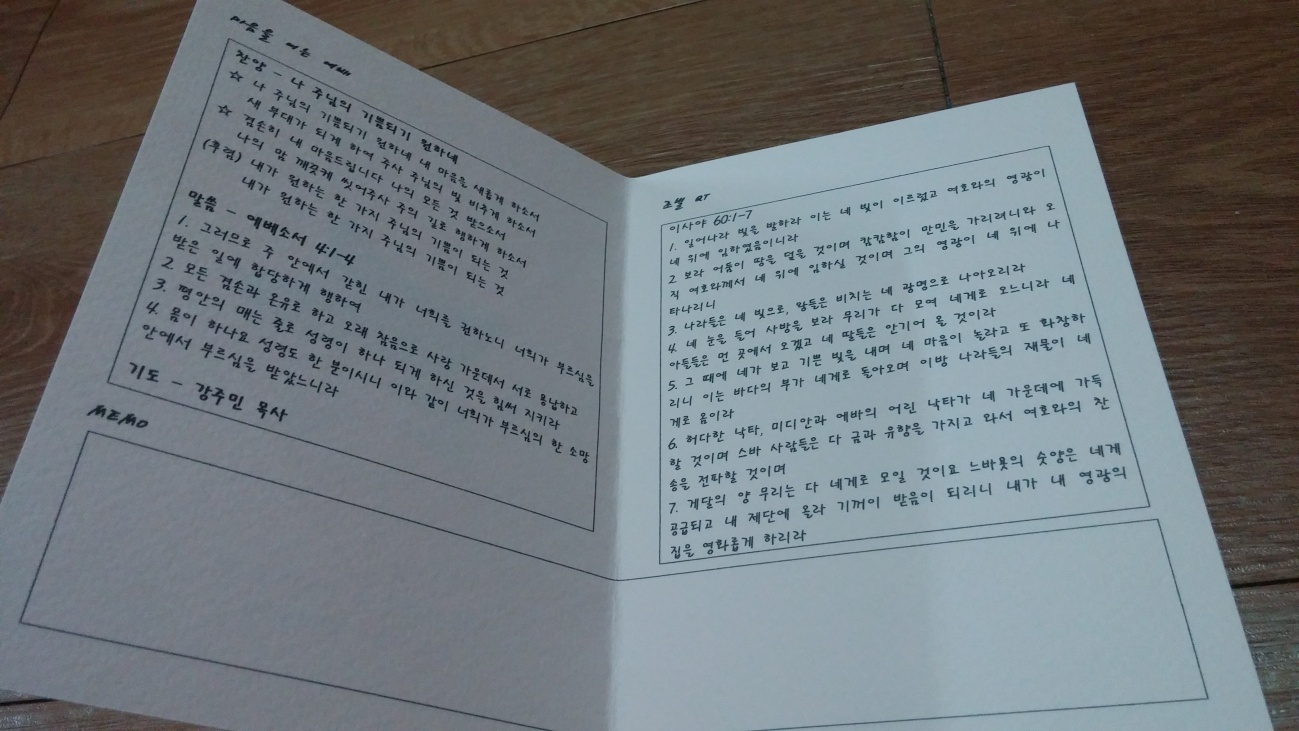 마음을 여는 예배
찬양 - 나 주님의 기쁨되기 원하네
☆ 나 주님의 기쁨되기 원하네 내 마음을 새롭게 하소서
새 부대가 되게 하여 주사 주님의 빛 비추게 하소서
☆ 겸손히 내 마음드립니다 나의 모든 것 받으소서
나의 맘 깨끗케 씻어주사 주의 길로 행하게 하소서
(후렴) 내가 원하는 한 가지 주님의 기쁨이 되는 것
내가 원하는 한 가지 주님의 기쁨이 되는 것
말씀 - 에베소서 4:1-4
1. 그러므로 주 안에서 갇힌 내가 너희를 권하노니 너희가 부르심을
받은 일에 합당하게 행하여
2. 모든 겸손과 온유로 하고 오래 참음으로 사랑 가운데서 서로 용납하고
3. 평안의 매는 줄로 성령이 하나 되게 하신 것을 힘써 지키라
4. 몸이 하나요 성령도 한 분이시니 이와 같이 너희가 부르심의 한 소망
안에서 부르심을 받았느니라
기도 - 강주민 목사
MEMO
조별 QT
이사야 60:1-7
1. 일어나라 빛을 발하라 이는 네 빛이 이르렀고 여호와의 영광이
네 위에 임하였음이니라
2 보라 어둠이 땅을 덮을 것이며 캄캄함이 만민을 가리려니와 오
직 여호와께서 네 위에 임하실 것이며 그의 영광이 네 위에 나
타나리니
3. 나라들은 네 빛으로, 왕들은 비치는 네 광명으로 나아오리라
4. 네 눈을 들어 사방을 보라 무리가 다 모여 네게로 오느니라 네
아들들은 먼 곳에서 오겠고 네 딸들은 안기어 올 것이라
5. 그 때에 네가 보고 기쁜 빛을 내며 네 마음이 놀라고 또 화창하
리니 이는 바다의 부가 네게로 돌아오며 이방 나라들의 재물이 네
게로 옴이라
6. 허다한 낙타, 미디안과 에바의 어린 낙타가 네 가운데에 가득
할 것이며 스바 사람들은 다 금과 유향을 가지고 와서 여호와의 찬
송을 전파할 것이며
7. 게달의 양 무리는 다 네게로 모일 것이요 느바욧의 숫양은 네게
공급되고 내 제단에 올라 기꺼이 받음이 되리니 내가 내 영광의
집을 영화롭게 하리라